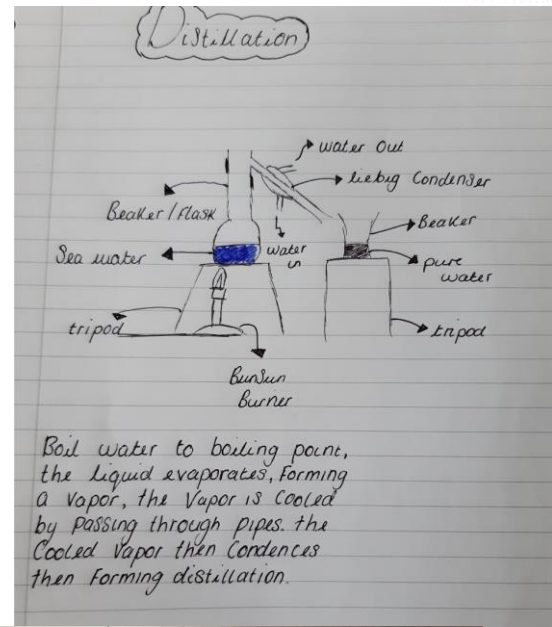 Distillation
water Out
liebig Condenser
Beaker / flask
Beaker
Sea water
water
in
pure
water
tripod
tripod
Bunsun
Burner
Boil water to boiling point,
the liquid evaporates, forming
a vapor, the vapor is Cooled
by passing through pipes. the
Cooled vapor then Condences
then forming distillation.